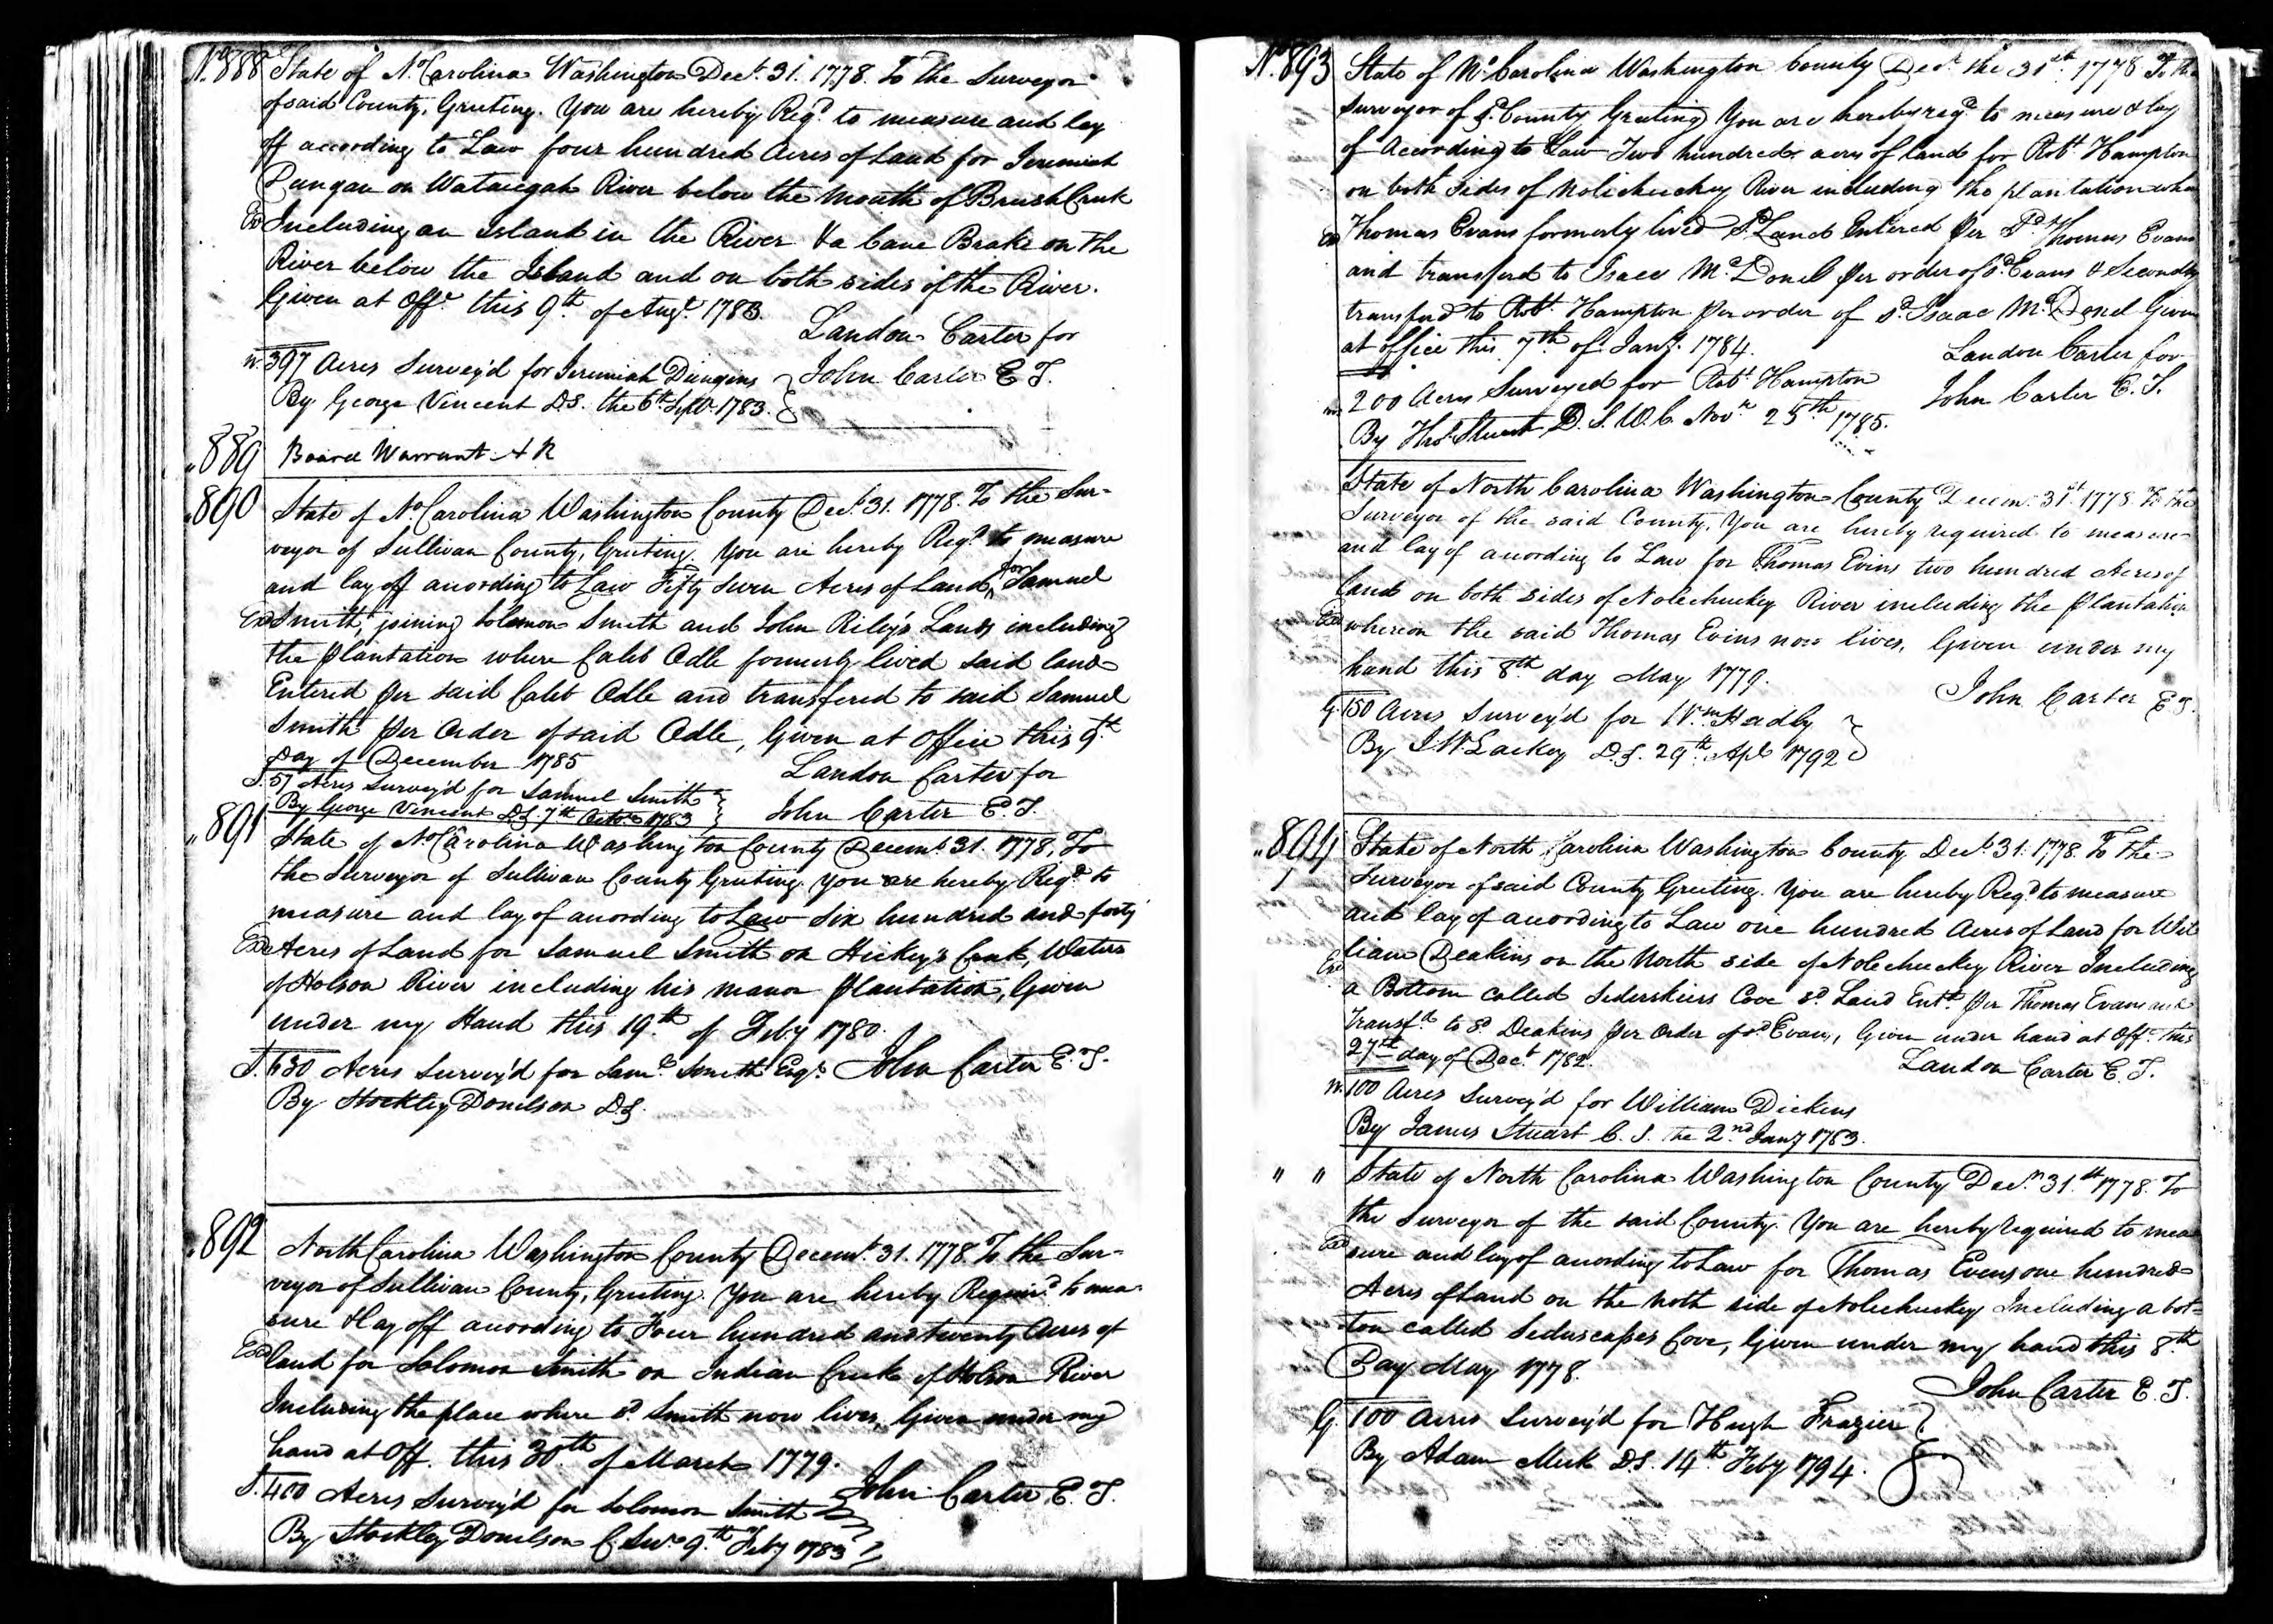 No. 888 State of No. Carolina Washington Decr. 31. 1778. To the Surveyor
of said County, Greeting. You are hereby Reqd. to measure and lay
off according to Law four hundred Acres of Land for Jeremiah
Dungan on Wataugah River below the Mouth of Brush Creek
Exd Including an Island in the River & a Cane Brake on the
River below the Island and on both sides of the River.
Given at Offe. this 9th. of Augt. 1783.
Landon Carter for
W. 397 Acres Survey'd for Jeremiah Dungins } John Carter E T.
By George Vincent D.S. the 6th. Sept. 1783. }
" 889 Board Warrant
" 890 State of No. Carolina Washington County Decr. 31. 1778. To the Sur-
veyor of Sullivan County, Greeting. You are hereby Reqd. to measure
and lay off according to Law Fifty Seven Acres of Land, for Samuel
Exd Smith, joining Solomon Smith and John Riley's Lands including
the Plantation where Caleb Odle formerly lived said land
Entered per said Caleb Odle and transfered to said Samuel
Smith per Order of said Odle, Given at Office this 9th.
Day of December 1785
Landon Carter for
S. 57 Acres Survey'd for Samuel Smith }
By George Vincent D.S. 7th Octo. 1783 } John Carter E. T.
" 891 State of No. Carolina Washington County Decemr. 31. 1778, To
the Surveyor of Sullivan County Greeting. You are hereby Reqd. to
measure and lay of according to Law Six hundred and forty
Exd Acres of Land for Samuel Smith on Hickey's Creek, Waters
of Holson River including his manor Plantation, Given
under my Hand this 19th. of Feby 1780.
S. 630 Acres Survey'd for Saml. Smith Esqr. John Carter E. T.
By Stockley Donelson D.S.
" 892 North Carolina Washington County Decemr. 31. 1778. To the Sur-
veyor of Sullivan County, Greeting. You are hereby Requird. to mea-
sure & lay off according to Four hundred and twenty Acres of
Exd land for Solomon Smith on Indian Creek of Holson River
Including the place where sd. Smith now lives, Given under my
hand at Off. this 30th. of March 1779.
John Carter E. T.
S. 400 Acres Survey'd for Solomon Smith }
By Stockley Donelson C. Sur. 9th Feby 1783 }
No. 893 State of No. Carolina Washington County Decr. the 31st. 1778 To the
Surveyor of sd. County Greeting You are hereby reqd. to measure & lay
of According to Law Two hundred acres of land for Robt. Hampton
on both sides of Nolichuckey River including the plantation where
Exd Thomas Evans formerly lived sd. Land Entered Per sd. Thomas Evans
and transferd to Isaac McDonel Per order of sd. Evans & Secondly
transferd to Robt. Hampton Per order of sd. Isaac McDonel Given
at office this 7th of Jany. 1784.
Landon Carter for
W. 200 Acres Surveyed for Robt. Hampton
John Carter E. T.
By Thos. Stuart D. S. W. C. Novr. 25th 1785.
State of North Carolina Washington County Decem. 31st. 1778 To the
Surveyor of the said County. You are hereby required to measure
and lay of according to Law for Thomas Evins two hundred Acres of
land on both sides of Nolechuckey River including the Plantation
Exd whereon the said Thomas Evins now lives, Given under my
hand this 8th. day May 1779.
John Carter E T.
G. 150 Acres Survey'd for Wm. Hadly }
By J. W. Lackey D.S. 29th. Apl. 1792 }
" 894 State of North Carolina Washington County Decr. 31. 1778. To the
1 Surveyor of said County Greeting. You are hereby Reqd. to measure
and lay of according to Law one hundred Acres of Land for Wil
liam Deakins on the North side of Nolechuckey River Including
Exd a Bottom called Sederskiers Cove sd. Land Entd. Per Thomas Evans and
Transfd. to sd. Deakins Per Order of sd. Evans, Given under hand at Offe. this
27th day of Dect. 1782.
Landon Carter E. T.
W. 100 Acres Survey'd for William Dickens
By James Stuart C. S. the 2nd. Jany 1783.
" " State of North Carolina Washington County Decr. 31st. 1778. To
the Surveyor of the said County. You are hereby required to mea
Exd sure and lay of according to Law for Thomas Evens one hundred
Acres of Land on the noth side of Nolechuckey Including a bot-
tom called Seduscapes Cove, Given under my hand this 8th
Day May 1778.
John Carter E. T.
G. 100 Acres Survey'd for Hugh Frazier }
By Adam Meek D.S. 14th. Feby 1794.